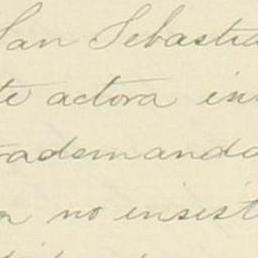 San Sebastia
te actora in
rademanda
no insist